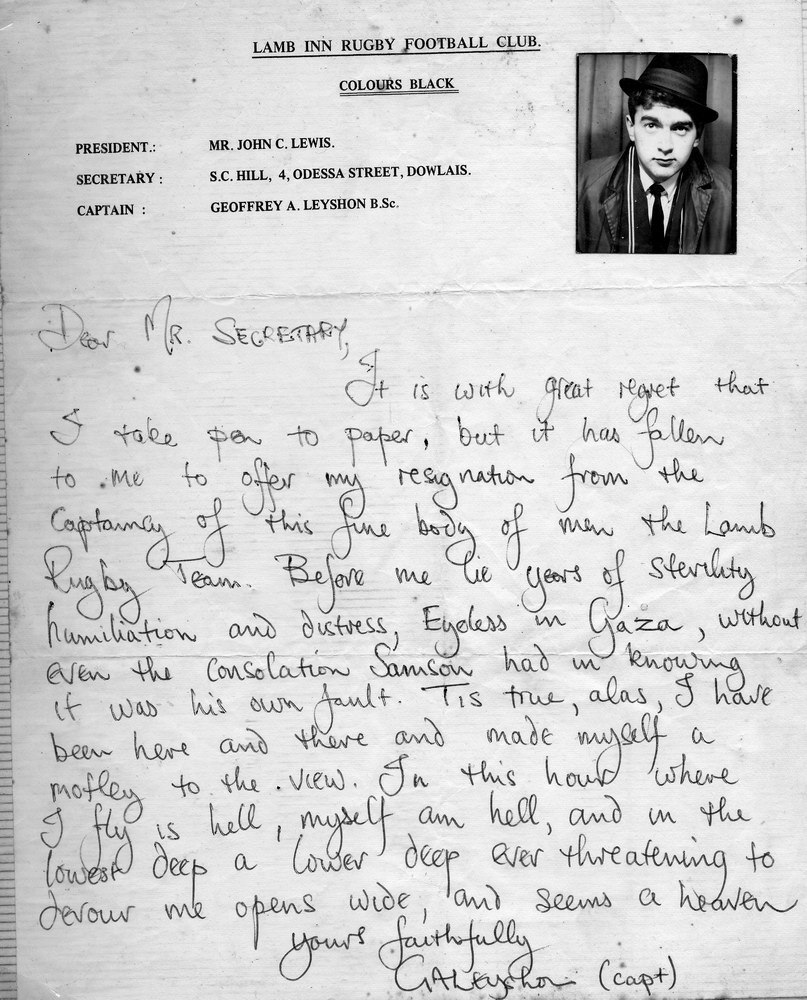 LAMB INN RUGBY FOOTBALL CLUB.
COLOURS BLACK
PRESIDENT.: MR. JOHN C. LEWIS.
SECRETARY : S.C. HILL, 4, ODESSA STREET, DOWLAIS.
CAPTAIN : GEOFFREY A. LEYSHON B.Sc.
Dear MR. SECRETARY,
It is with great regret that
I take pen to paper, but it has fallen
to me to offer my resignation from the
Captaincy of this fine body of men the Lamb
Rugby Team. Before me lie years of sterility
humiliation and distress, Eyeless in Gaza, without
even the consolation Samson had in knowing
it was his own fault. Tis true, alas, I have
been here and there and made myself a
motley to the view. In this hour where
I fly is hell, myself am hell, and in the
lowest deep a lower deep ever threatening to
devour me opens wide, and seems a heaven
yours faithfully
GALeyshon (capt)